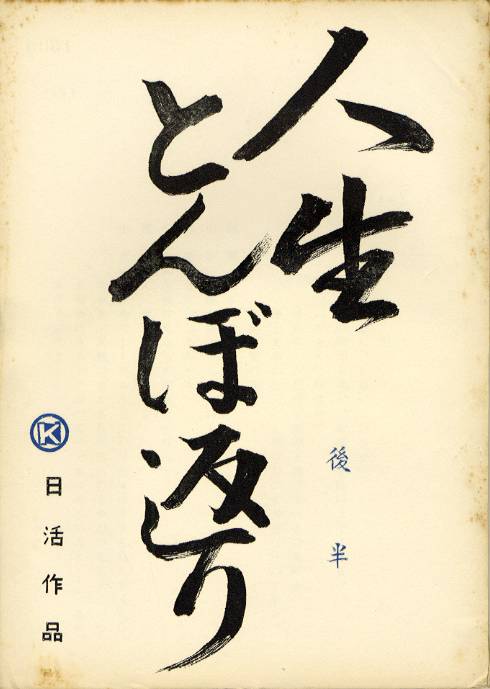 人生
とんぼ返り
後半
K
日活作品